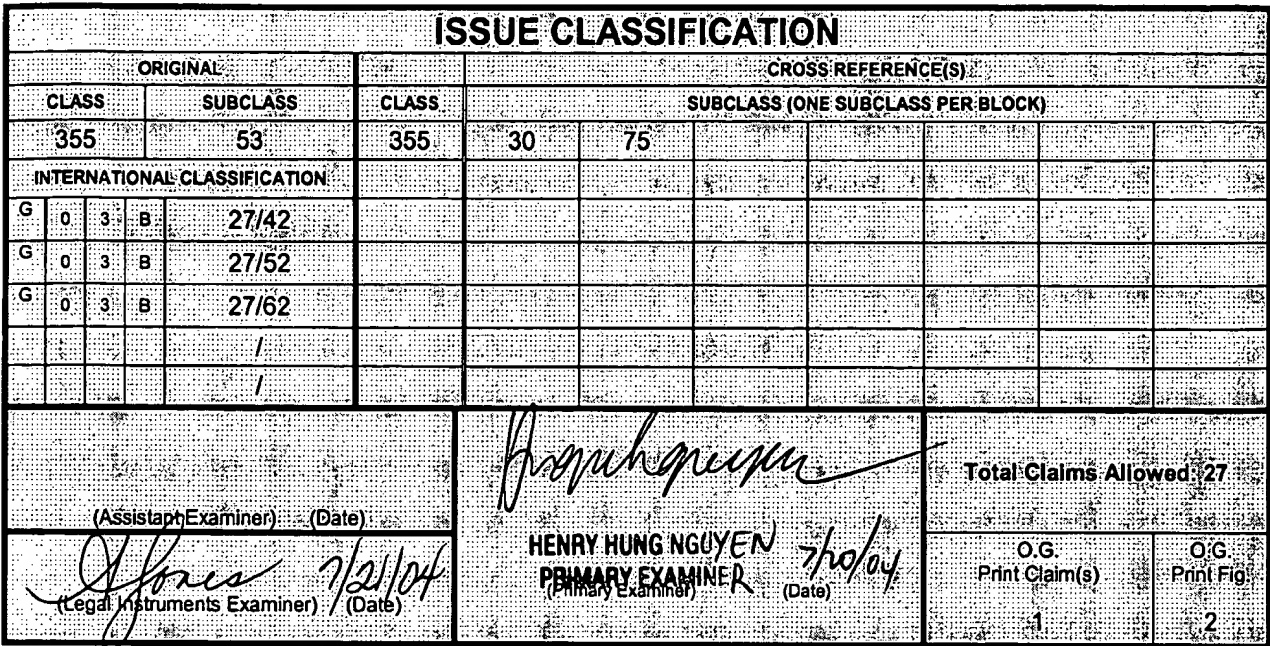 ISSUE CLASSIFICATION
ORIGINAL CROSS REFERENCE(S)
CLASS SUBCLASS CLASS SUBCLASS (ONE SUBCLASS PER BLOCK)
355 53 355 30 75
INTERNATIONAL CLASSIFICATION
G 0 3 B 27/42
G 0 3 B 27/52
G 0 3 B 27/62
/
/
(Assistant Examiner) (Date)
Jones 7/21/04
(Legal Instruments Examiner) (Date)
HENRY HUNG NGUYEN 7/20/04
PRIMARY EXAMINER
(Primary Examiner) (Date)
Total Claims Allowed: 27
O.G. Print Claim(s)
1
O.G. Print Fig.
2